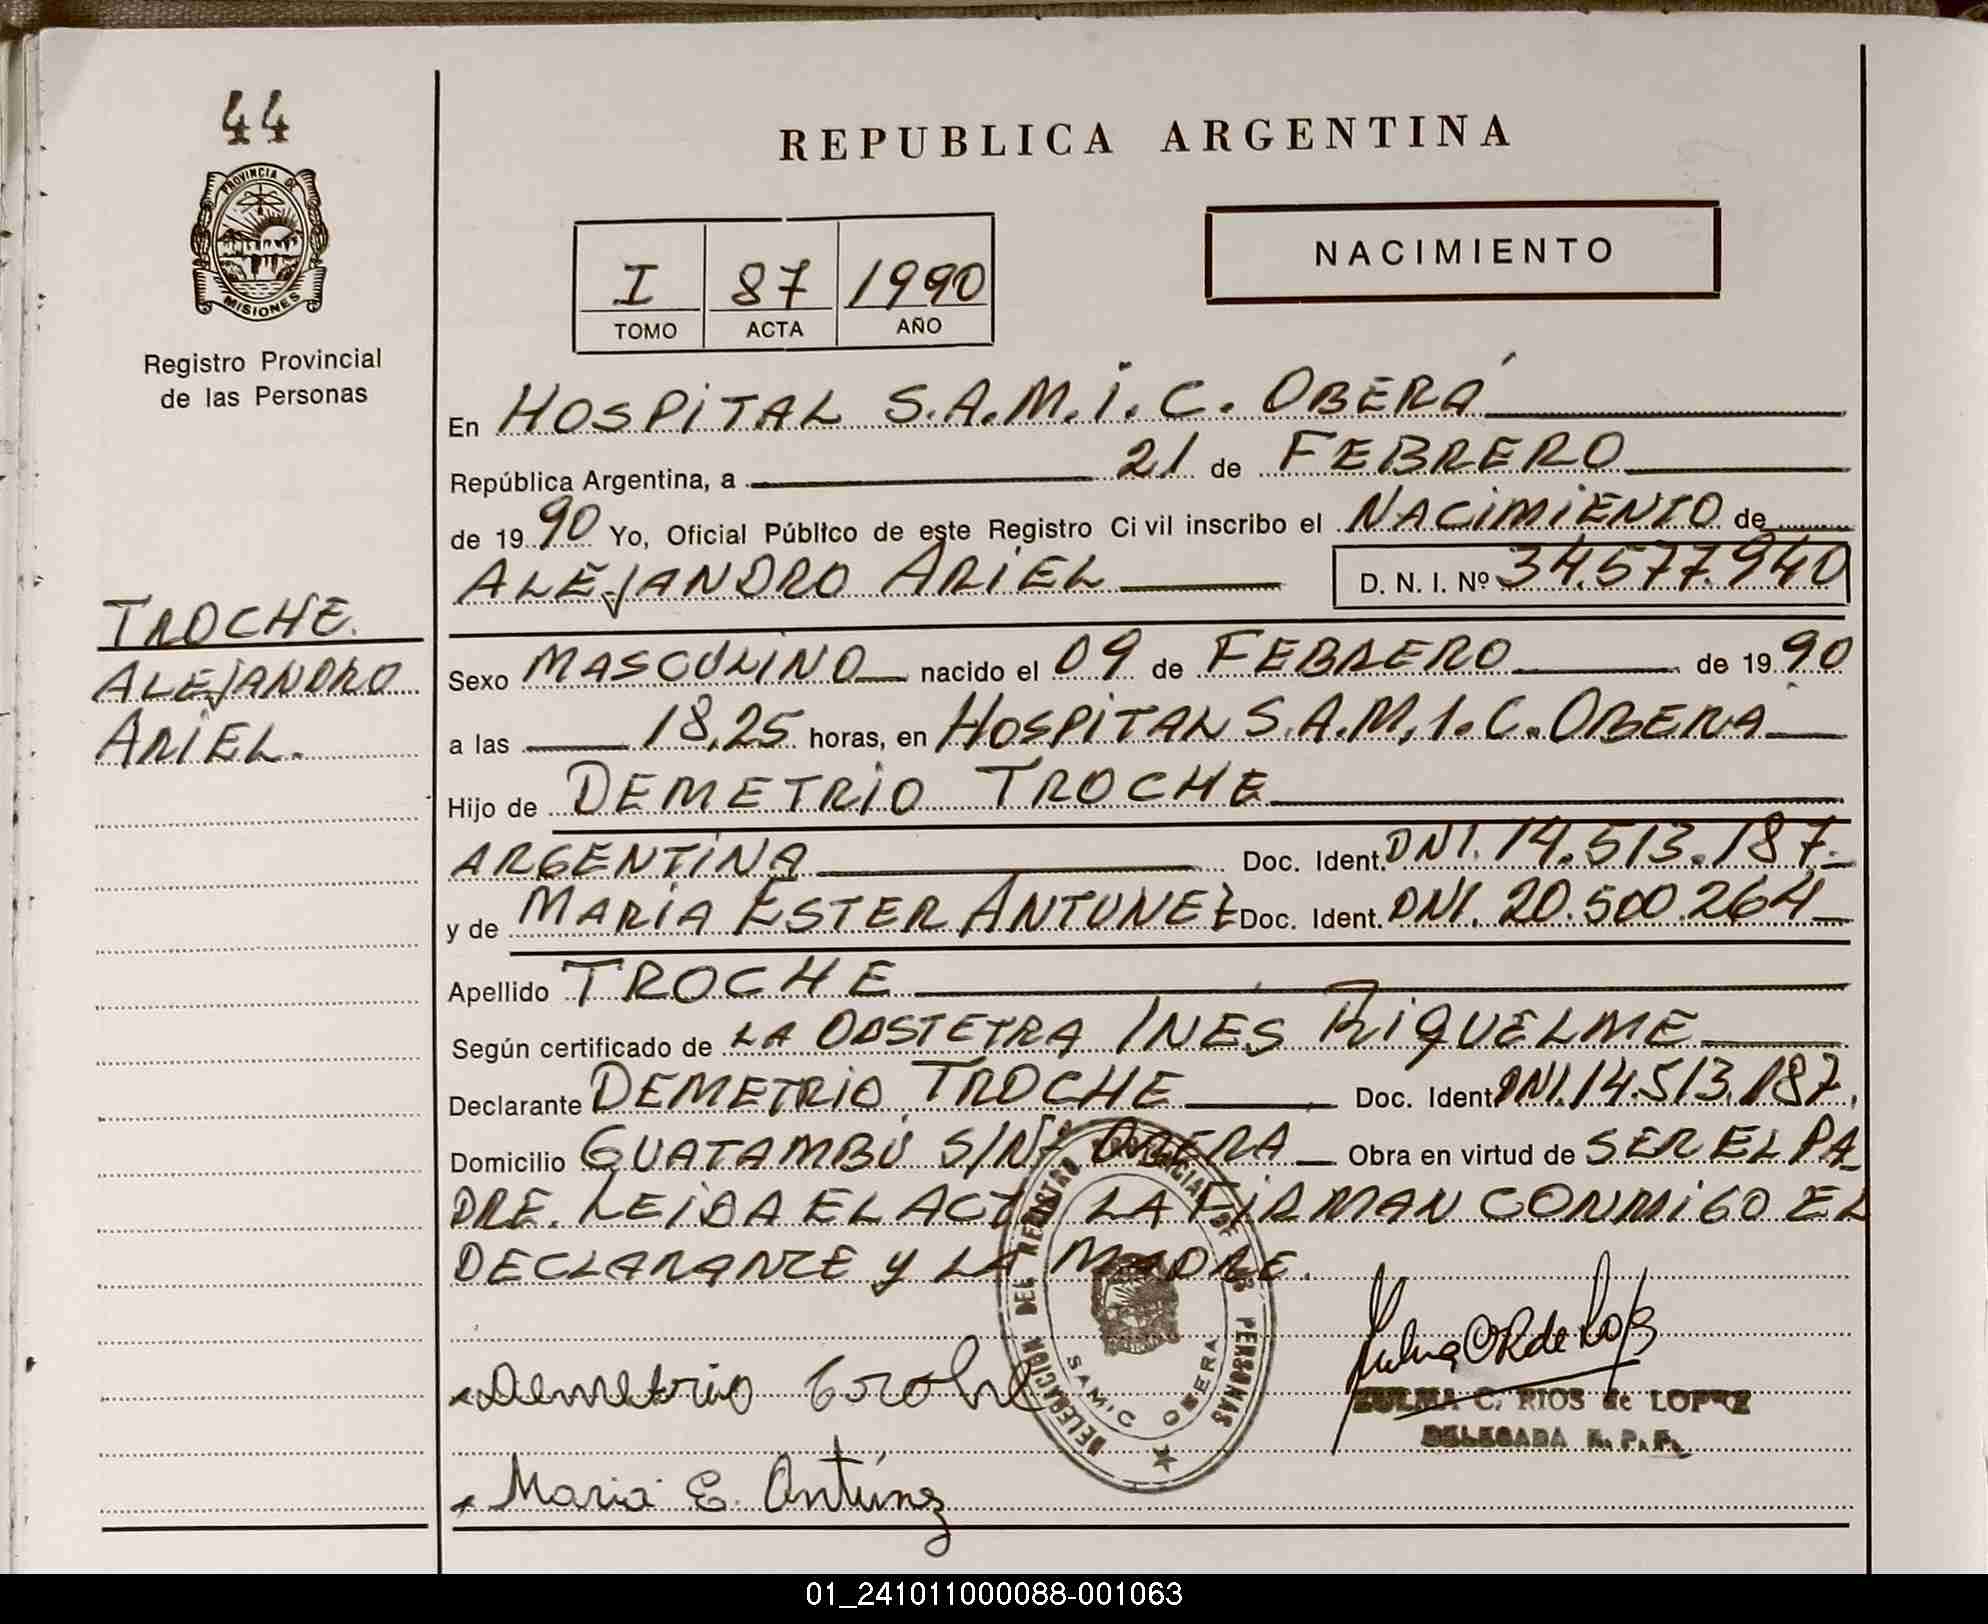 44
PROVINCIA DE
MISIONES
Registro Provincial
de las Personas
TROCHE.
ALEJANDRO
ARIEL.
REPUBLICA ARGENTINA
I 87 1990
TOMO ACTA AÑO
NACIMIENTO
En HOSPITAL S.A.M.I.C. OBERÁ
República Argentina, a 21 de FEBRERO
de 1990 Yo, Oficial Público de este Registro Civil inscribo el NACIMIENTO de
ALEJANDRO ARIEL D. N. I. Nº 34.577.940
Sexo MASCULINO nacido el 09 de FEBRERO de 1990
a las 18,25 horas, en HOSPITAL S.A.M.I.C. OBERA
Hijo de DEMETRIO TROCHE
ARGENTINA Doc. Ident. DNI. 14.513.187.
y de MARIA ESTER ANTUNEZ Doc. Ident. DNI. 20.500.264
Apellido TROCHE
Según certificado de LA OBSTETRA INES RIQUELME
Declarante DEMETRIO TROCHE Doc. Ident. DNI. 14.513.187.
Domicilio GUATAMBÚ S/Nº OBERA Obra en virtud de SER EL PA-
DRE. LEIDA EL ACTA LA FIRMAN CONMIGO EL
DECLARANTE Y LA MADRE.
DELEGACION DEL REGISTRO PROVINCIAL DE LAS PERSONAS
SAMIC OBERA
Demetrio Troche
ZULMA C. RIOS de LOPEZ
DELEGADA R. P. P.
Maria E. Antúnez
01_241011000088-001063